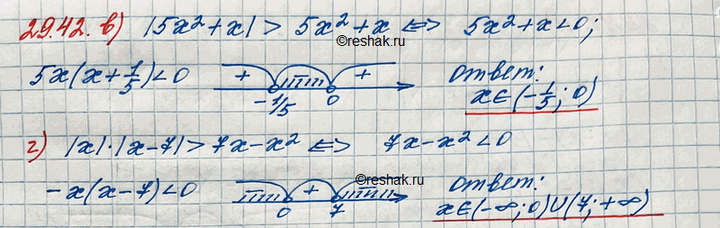 29.42. в) |5x²+x| > 5x²+x <=> 5x²+x<0;
©reshak.ru
5x(x+1/5)<0 + + -1/5 0 Ответ: x∈(-1/5; 0)
г) |x|·|x-7|>7x-x² <=> 7x-x²<0
©reshak.ru
-x(x-7)<0 + 0 7 Ответ: x∈(-∞; 0)∪(7; +∞)